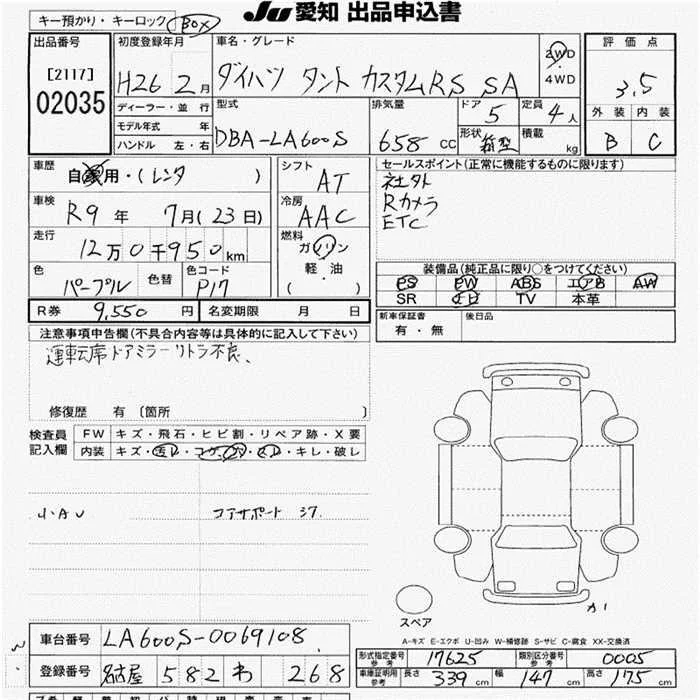 キー預かり・キーロック BOX
JU 愛知 出品申込書
出品番号 [2117] 02035
初度登録年月 H26 2月
車名・グレード ダイハツ タント カスタムRS SA
2WD・4WD
評価点 3.5
外装 内装
B C
ディーラー・並行
モデル年式 年
ハンドル 左・右
型式 DBA-LA600S
排気量 658 CC
ドア 5
定員 4人
形状 箱型
積載 kg
車歴 自家用・(レンタ )
シフト AT
セールスポイント(正常に機能するものに限ります)
社外
Rカメラ
ETC
車検 R9年 7月(23日)
冷房 AAC
走行 12万0千950km
燃料 ガソリン
軽・油
( )
色 パープル 色替 色コード P17
装備品(純正品に限り○をつけてください)
PS PW ABS エアB AW
SR ナビ TV 本革
R券 9,550円 名変期限 月 日
新車保証書 有・無 後日品
注意事項申告欄(不具合内容等は具体的に記入して下さい)
運転席ドアミラーリトラ不良、
修復歴 有 [箇所 ]
検査員記入欄
FW キズ・飛石・ヒビ割・リペア跡・X要
内装 キズ・汚レ・コゲ・穴・スレ・キレ・破レ
小・AU コアサポート
スペア
A-キズ E-エクボ U-凹み W-補修跡 S-サビ C-腐食 XX-交換済
車台番号 LA600S-0069108
登録番号 名古屋 582 わ 268
形式指定番号 参考 17625 類別区分番号 参考 0005
車庫証明用 参考 長さ 339cm 幅 147cm 高さ 175cm